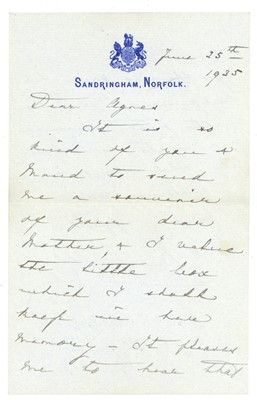 June 25th
1935
SANDRINGHAM, NORFOLK.
Dear Agnes
It is so
kind of you &
Maud to send
me a souvenir
of your dear
Mother, & I value
the little box
which I shall
keep in her
memory - It pleases
me to hear that